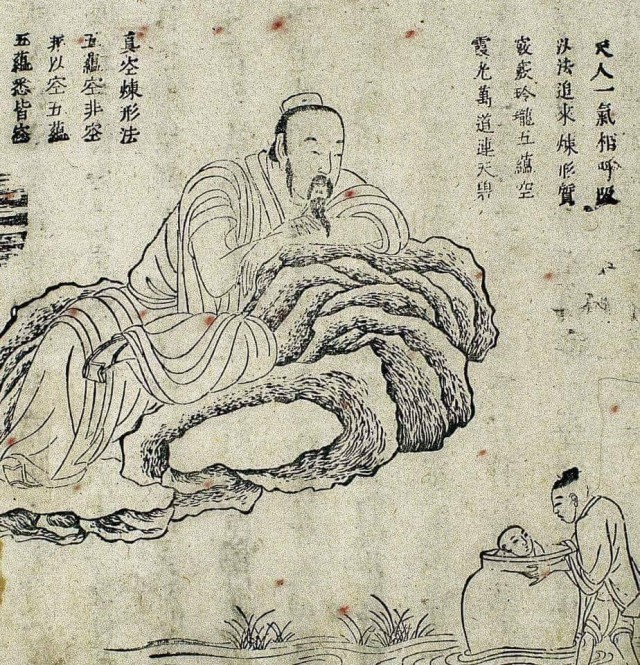 天人一氣相呼吸
以法追來煉形質
竅竅玲瓏五蘊空
霞光萬道連天碧
真空煉形法
五蘊空非空
所以空五蘊
五蘊悉皆空